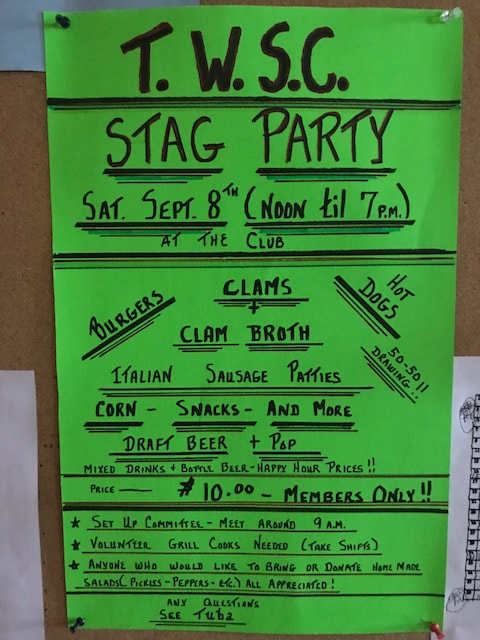 T. W. S. C.
STAG PARTY
SAT. SEPT. 8TH (NOON til 7 P.M.)
AT THE CLUB
BURGERS
CLAMS
+
CLAM BROTH
HOT DOGS
50-50!!
DRAWING..
ITALIAN SAUSAGE PATTIES
CORN - SNACKS - AND MORE
DRAFT BEER + POP
MIXED DRINKS + BOTTLE BEER - HAPPY HOUR PRICES!!
PRICE — $10.00 - MEMBERS ONLY!!
★ SET UP COMMITTEE - MEET AROUND 9 A.M.
★ VOLUNTEER GRILL COOKS NEEDED (TAKE SHIFTS)
★ ANYONE WHO WOULD LIKE TO BRING OR DONATE HOME MADE
SALADS (PICKLES - PEPPERS - ETC.) ALL APPRECIATED!
ANY QUESTIONS
SEE TUBZ